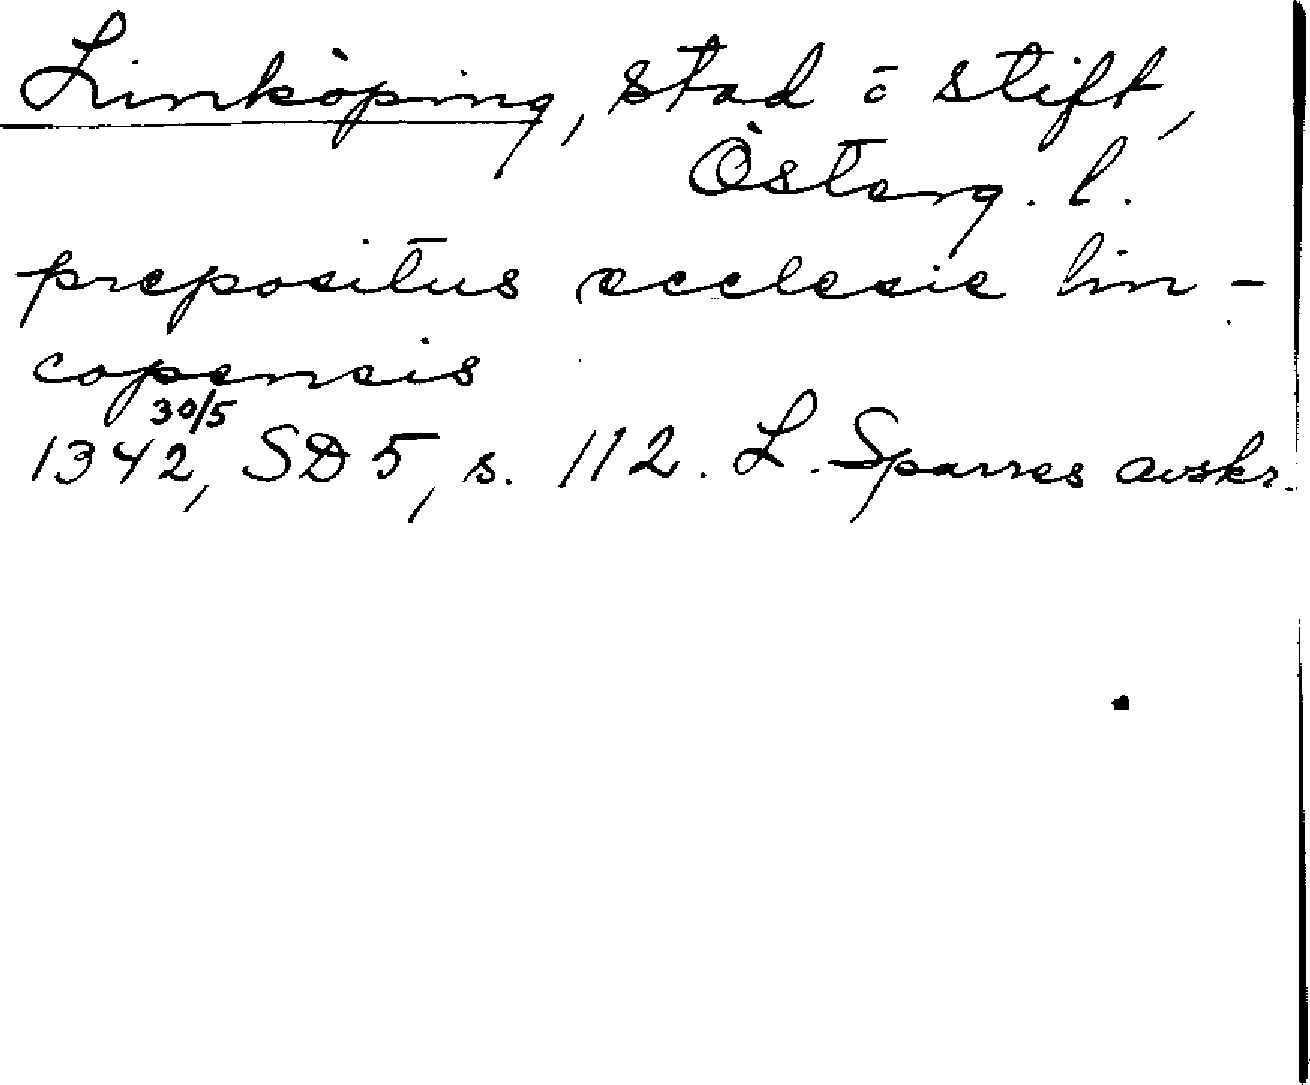 Linköping, stad o stift,
Österg. l.
prepositus ecclesie lin-
copensis
30/5
1342, SD 5, s. 112. L. Sparres avskr.